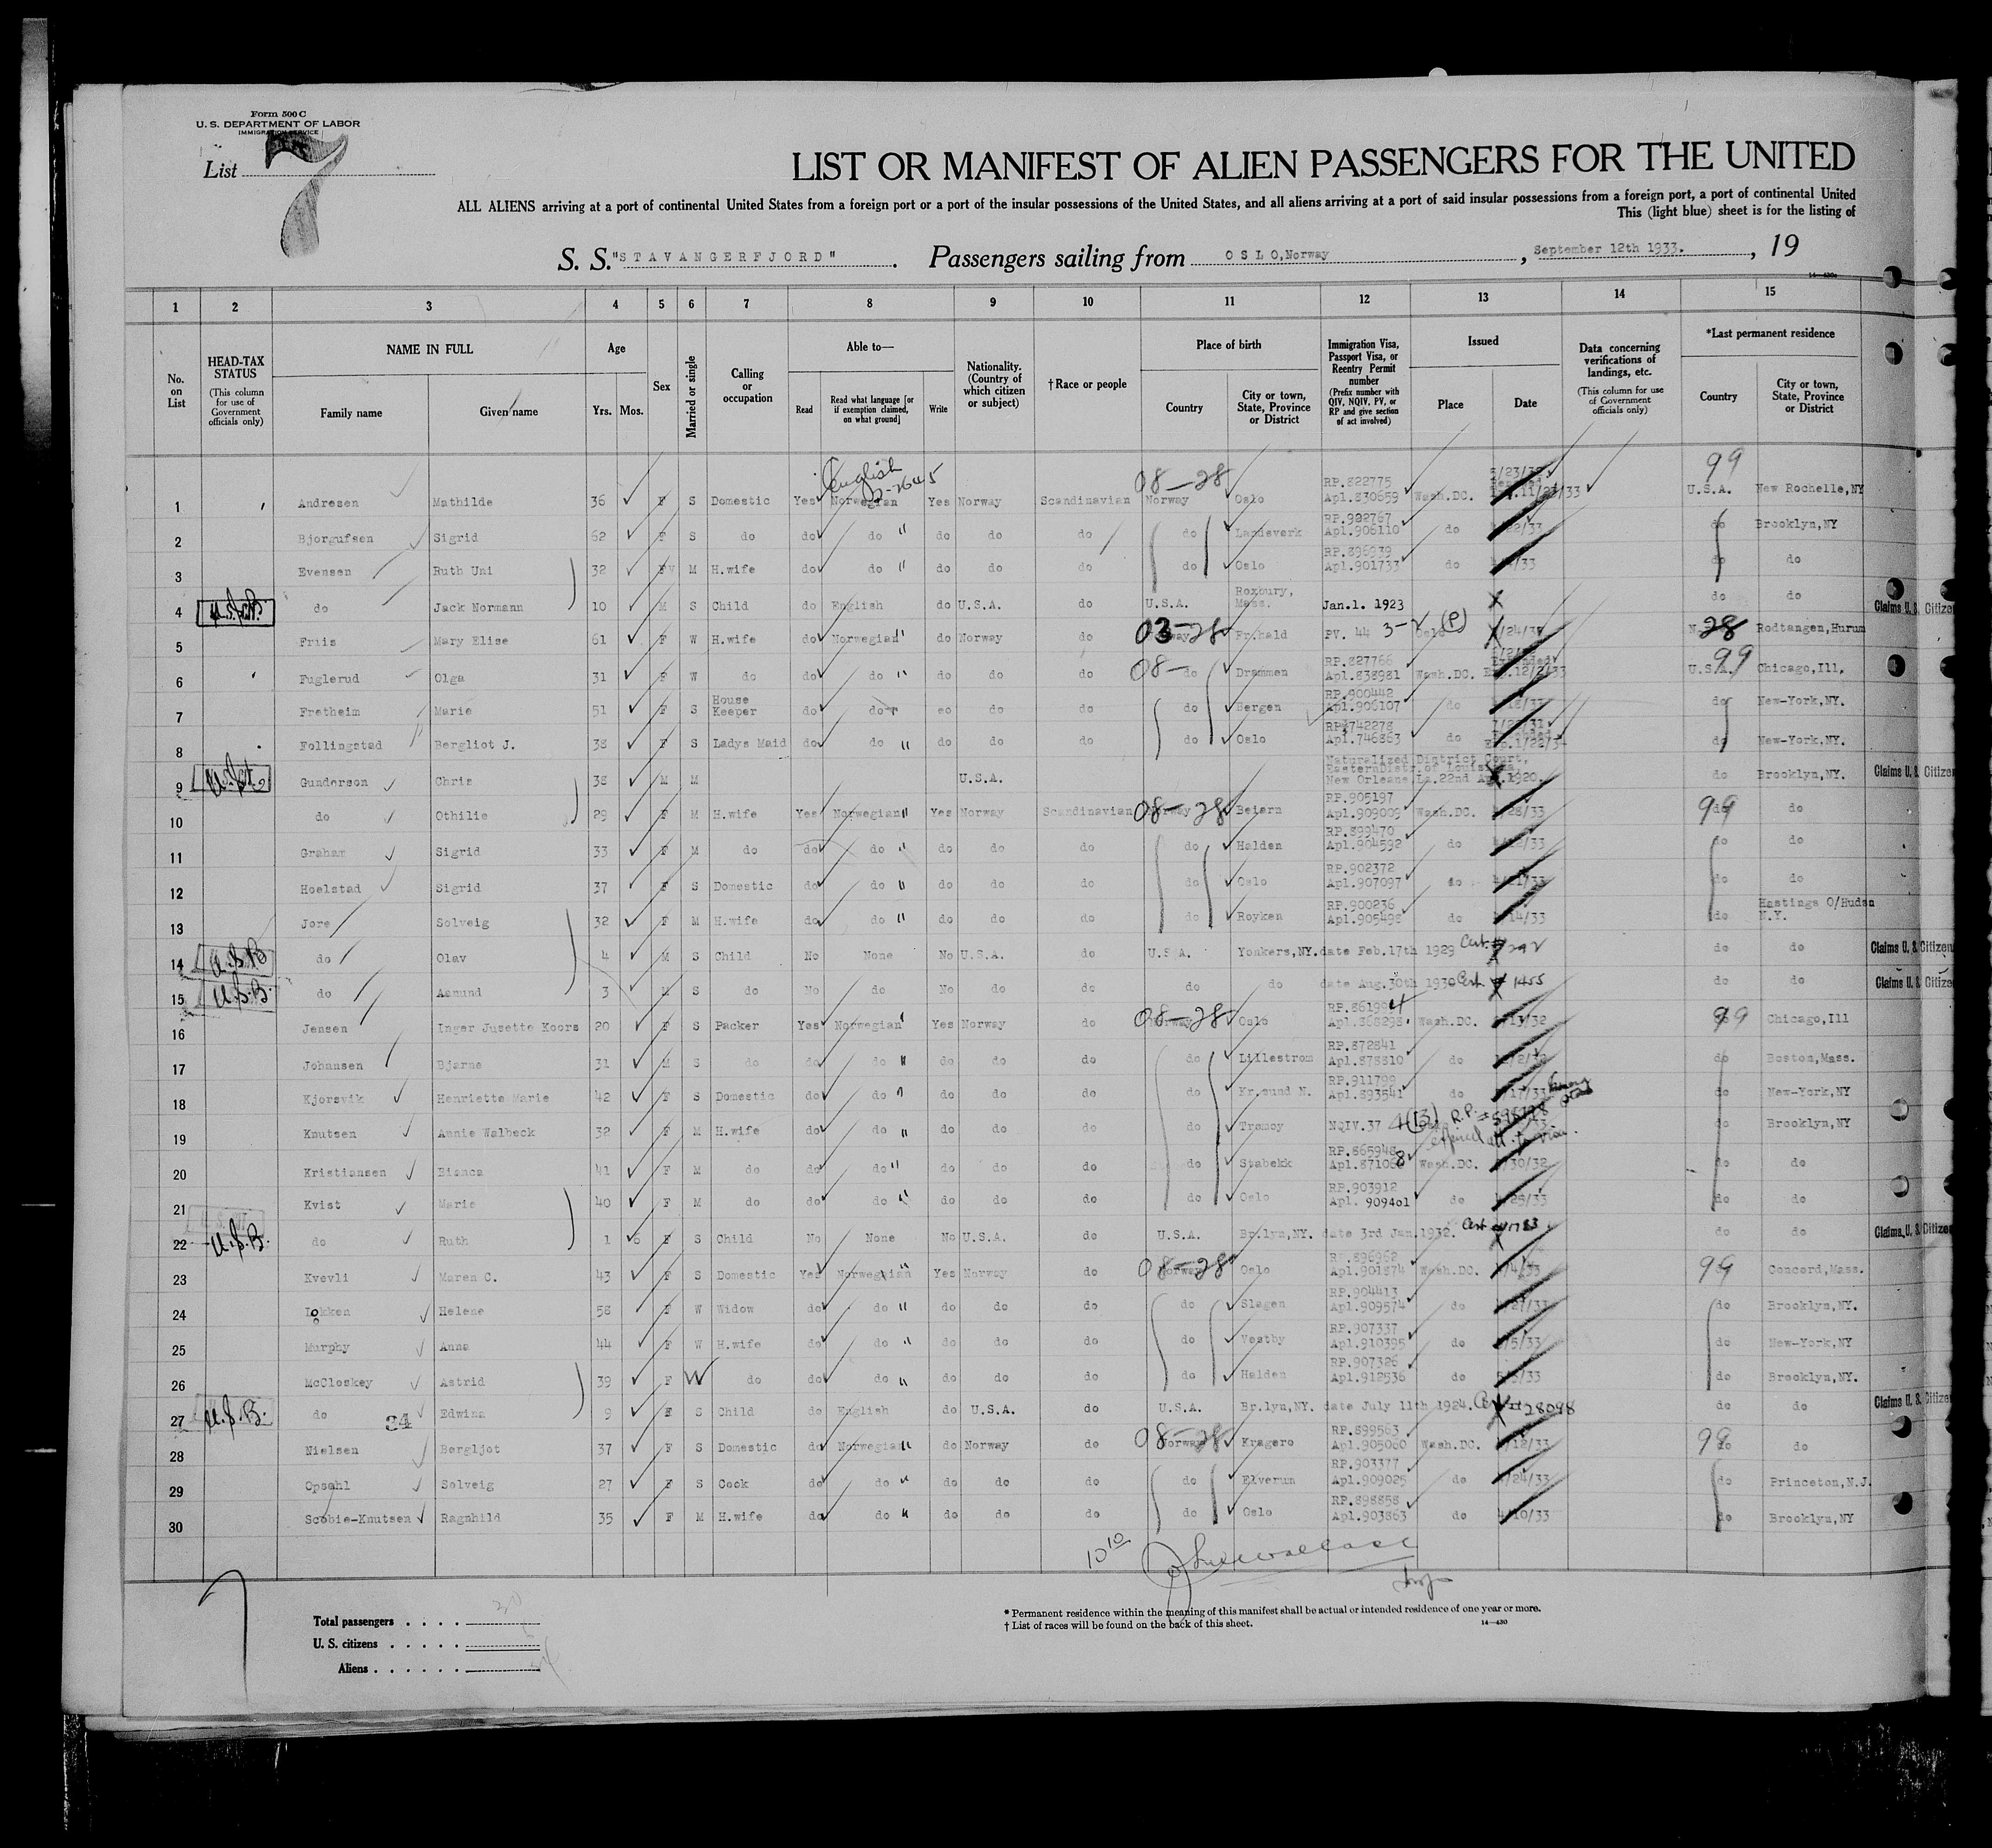 Form 500 C
U. S. DEPARTMENT OF LABOR
IMMIGRATION SERVICE
List 7
LIST OR MANIFEST OF ALIEN PASSENGERS FOR THE UNITED
ALL ALIENS arriving at a port of continental United States from a foreign port or a port of the insular possessions of the United States, and all aliens arriving at a port of said insular possessions from a foreign port, a port of continental United
This (light blue) sheet is for the listing of
S. S. "STAVANGERFJORD". Passengers sailing from OSLO,Norway, September 12th 1933., 19
14-430a
1 2 3 4 5 6 7 8 9 10 11 12 13 14 15
No. on List
HEAD-TAX STATUS (This column for use of Government officials only)
NAME IN FULL Family name Given name
Age Yrs. Mos.
Sex
Married or single
Calling or occupation
Able to— Read Read what language [or if exemption claimed, on what ground] Write
Nationality. (Country of which citizen or subject)
† Race or people
Place of birth Country City or town, State, Province or District
Immigration Visa, Passport Visa, or Reentry Permit number (Prefix number with QIV, NQIV, PV, or RP and give section of act involved)
Issued Place Date
Data concerning verifications of landings, etc. (This column for use of Government officials only)
*Last permanent residence Country City or town, State, Province or District
1 Andresen Mathilde 36 F S Domestic Yes Norwegian English Yes Norway Scandinavian 08-28 Norway Oslo RP.822775 Apl.830659 Wash.DC. 99 U.S.A. New Rochelle,NY
2 Bjorgufsen Sigrid 62 F S do do do " do do do do RP.902767 Apl.906110 do do Brooklyn,NY
3 Evensen Ruth Uni 32 F M H.wife do do " do do do do Oslo RP.896939 Apl.901733 do do do
4 U.S.B. do Jack Normann 10 M S Child do English do U.S.A. do U.S.A. Roxbury, Mass. Jan.1. 1923 do do Claims U. S. Citizen
5 Friis Mary Elise 61 F W H.wife do Norwegian" do Norway do 03-28 Fr.hald PV. 44 3-2 (P) Oslo 28 Rodtangen,Hurum
6 Fuglerud Olga 31 F W do do do " do do do 08- do Drammen RP.827766 Apl.838981 Wash.DC. U.S.A. 99 Chicago,Ill.
7 Fretheim Marie 51 F S House Keeper do do do do do do Bergen RP.900442 Apl.906107 do do New-York,NY.
8 Follingstad Bergliot J. 38 F S Ladys Maid do do " do do do do Oslo RP.742278 Apl.746863 do do New-York,NY.
9 Gunderson Chris 38 M M U.S.A. Naturalized District Court, Eastern Distr. of Louisiana, New Orleans,La.22nd Apl.1920. do Brooklyn,NY. Claims U. S. Citizen
10 do Othilie 29 F M H.wife Yes Norwegian" Yes Norway Scandinavian 08-28 Norway Beiarn RP.905197 Apl.909009 Wash.DC. 99 do do
11 Graham Sigrid 33 F M do do do " do do do do Halden RP.899470 Apl.904592 do do do
12 Hoelstad Sigrid 37 F S Domestic do do " do do do do Oslo RP.902372 Apl.907097 do do do
13 Jore Solveig 32 F M H.wife do do " do do do do Royken RP.900236 Apl.905498 do do Hastings O/Hudsn N.Y.
14 U.S.B do Olav 4 M S Child No None No U.S.A. do U.S.A. Yonkers,NY.date Feb.17th 1929 Cert. # 292 do do Claims U. S. Citizen
15 U.S.B. do Asmund 3 M S do No do No do do do do date Aug.30th 1930 Cert # 1455 do do Claims U. S. Citizen
16 Jensen Inger Jusette Koors 20 F S Packer Yes Norwegian" Yes Norway do 08-28 Norway Oslo RP.861994 Apl.868298 Wash.DC. 99 Chicago,Ill
17 Johansen Bjarne 31 M S do do do " do do do do Lillestrom RP.872841 Apl.878810 do do Boston,Mass.
18 Kjorsvik Henriette Marie 42 F S Domestic do do " do do do do Kr.sund N. RP.911799 Apl.893541 do do New-York,NY
19 Knutsen Annie Walbeck 32 F M H.wife do do " do do do do Tromoy NQIV.37 4(3) R.P. do Brooklyn,NY
20 Kristiansen Bianca 41 F M do do do " do do do do Stabekk RP.865948 Apl.871068 Wash.DC. do do
21 Kvist Marie 40 F M do do do " do do do do Oslo RP.903912 Apl. 909401 do do do
22 U.S.B. do Ruth 1 6 F S Child No None No U.S.A. do U.S.A. Br.lyn,NY. date 3rd Jan.1932. Cert #1783 do do Claims U. S. Citizen
23 Kvevli Maren C. 43 F S Domestic Yes Norwegian Yes Norway do 08-28 Norway Oslo RP.896962 Apl.901874 Wash.DC. 99 Concord,Mass.
24 Lokken Helene 58 F W Widow do do " do do do do Slagen RP.904413 Apl.909574 do do Brooklyn,NY.
25 Murphy Anna 44 F W H.wife do do " do do do do Vestby RP.907337 Apl.910395 do do New-York,NY
26 McCloskey Astrid 39 F W do do do " do do do do Halden RP.907326 Apl.912536 do do Brooklyn,NY.
27 U.S.B. do 34 Edwina 9 F S Child do English do U.S.A. do U.S.A. Br.lyn,NY. date July 11th 1924. 28098 do do Claims U. S. Citizen
28 Nielsen Bergljot 37 F S Domestic do Norwegian" do Norway do 08-28 Norway Kragero RP.899563 Apl.905060 Wash.DC. 99 do do
29 Opsahl Solveig 27 F S Cook do do " do do do do Elverum RP.903377 Apl.909025 do do Princeton,N.J.
30 Scobie-Knutsen Ragnhild 35 F M H.wife do do " do do do do Oslo RP.898858 Apl.903863 do do Brooklyn,NY
Total passengers 30
U. S. citizens
Aliens
* Permanent residence within the meaning of this manifest shall be actual or intended residence of one year or more.
† List of races will be found on the back of this sheet.
14-430